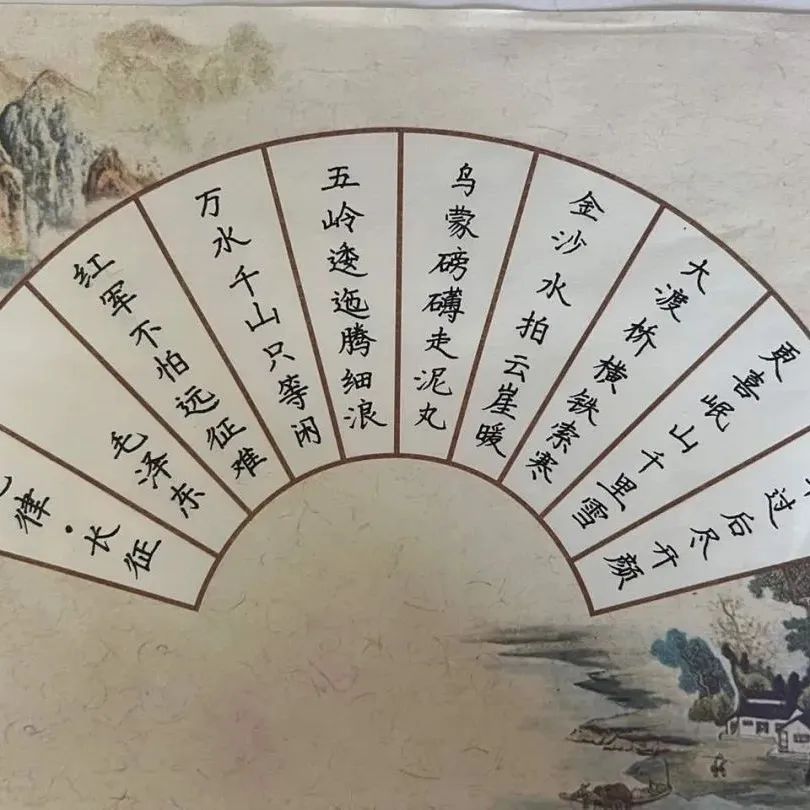 律·长征
毛泽东
红军不怕远征难
万水千山只等闲
五岭逶迤腾细浪
乌蒙磅礴走泥丸
金沙水拍云崖暖
大渡桥横铁索寒
更喜岷山千里雪
过后尽开颜